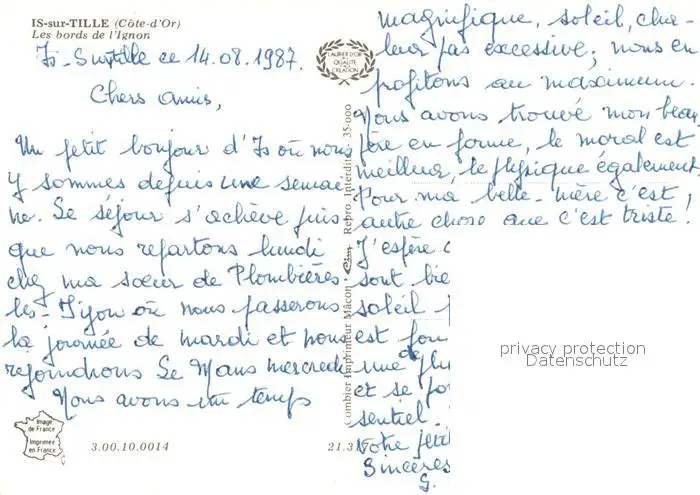 IS-sur-TILLE (Côte-d'Or)
Les bords de l'Ignon
Is-Surtille ce 14.08.1987.
Chers amis,
Un petit bonjour d'Is où nous
y sommes depuis une semai
ne. Le séjour s'achève puis
que nous repartons lundi
chez ma sœur de Plombières
les-Dijon où nous passerons
la journée de mardi et nous
rejoindrons Le Mans mercredi
Nous avons un temps
Image de France
Imprimée en France
3.00.10.0014
21.317
LAURIER D'OR
DE LA
QUALITÉ
CRÉATION
Combier Imprimeur Mâcon - Repro. Interdite - 35.000
magnifique, soleil, cha-
leur pas excessive; nous en
profitons au maximum.
Nous avons trouvé mon beau
père en forme, le moral est
meilleur, le physique également.
Pour ma belle-mère c'est
autre chose que c'est triste!
J'espère
sont bie
soleil
est
une
et se
sentiel
votre
Sincères
G.
privacy protection
Datenschutz